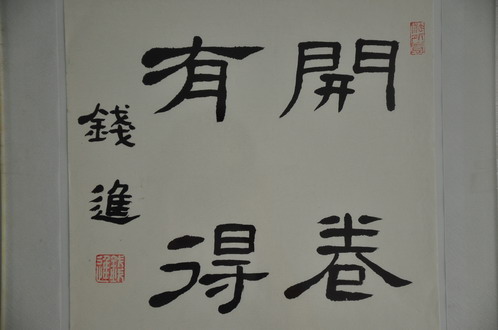 開卷
有得
錢進